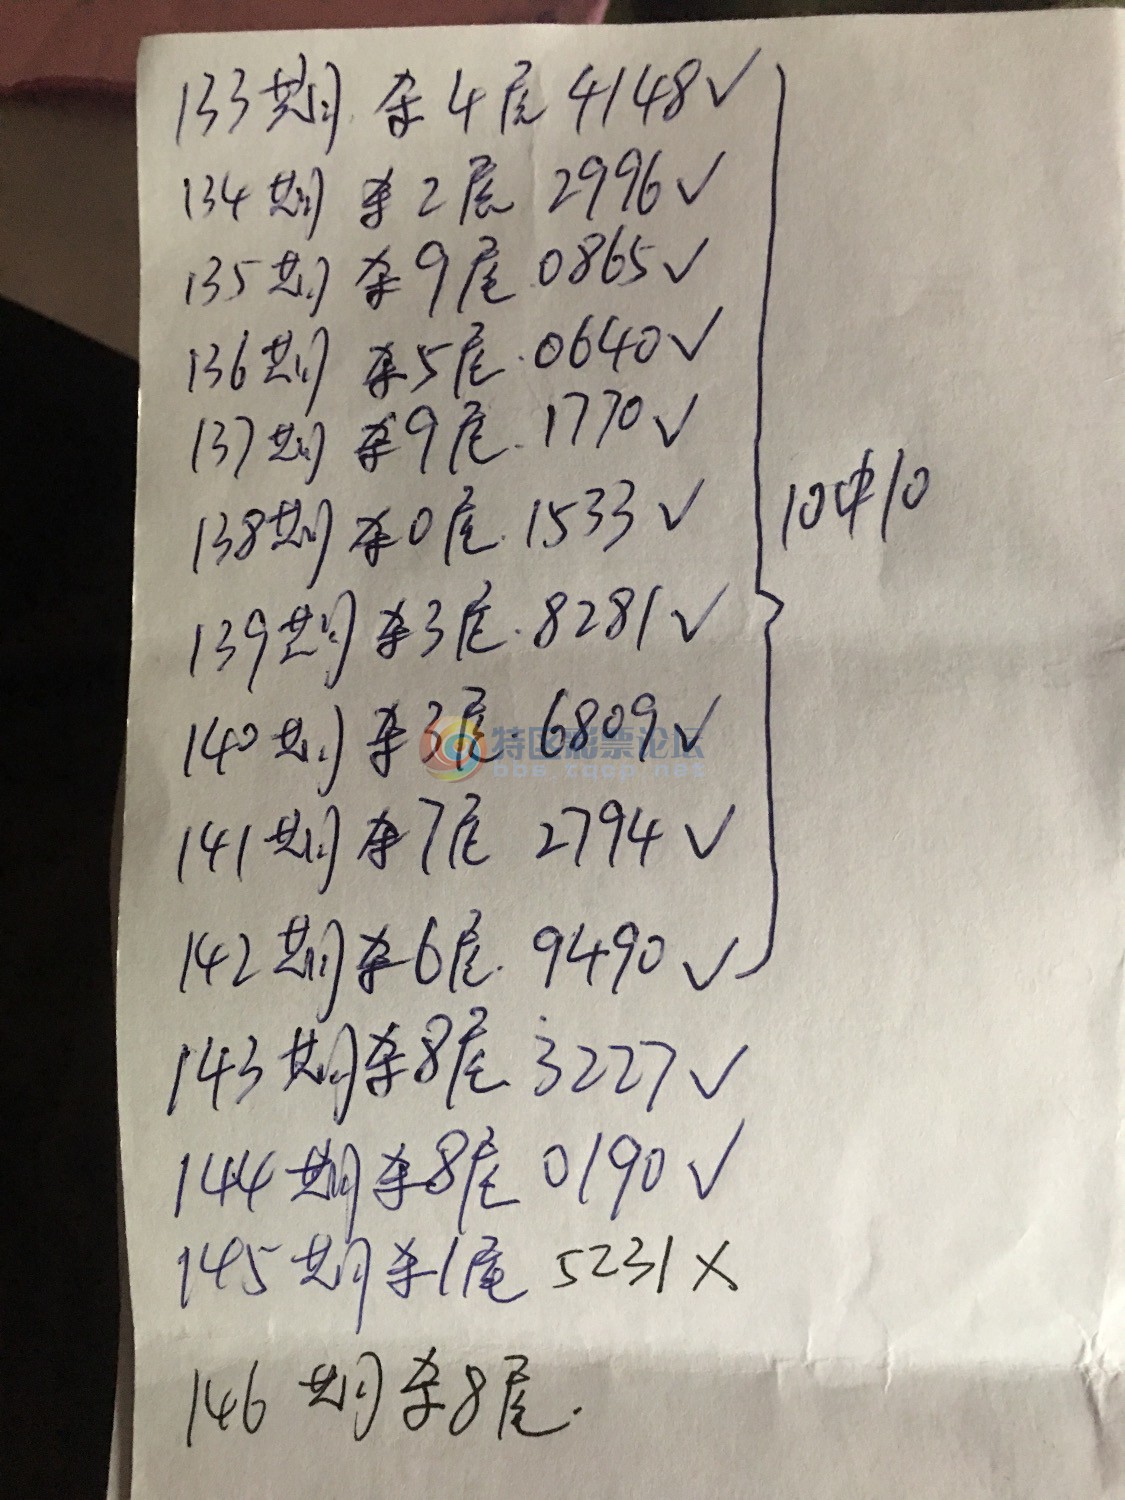 133期 杀4尾 4148✓
134期 杀2尾 2996✓
135期 杀9尾 0865✓
136期 杀5尾 0640✓
137期 杀9尾 1770✓
138期 杀0尾 1533✓
10中10
139期 杀3尾 8281✓
140期 杀3尾 6809✓
特区彩票论坛
bbs.xqcp.net
141期 杀7尾 2794✓
142期 杀6尾 9490✓
143期 杀8尾 3227✓
144期 杀8尾 0190✓
145期 杀1尾 5231×
146期 杀8尾.